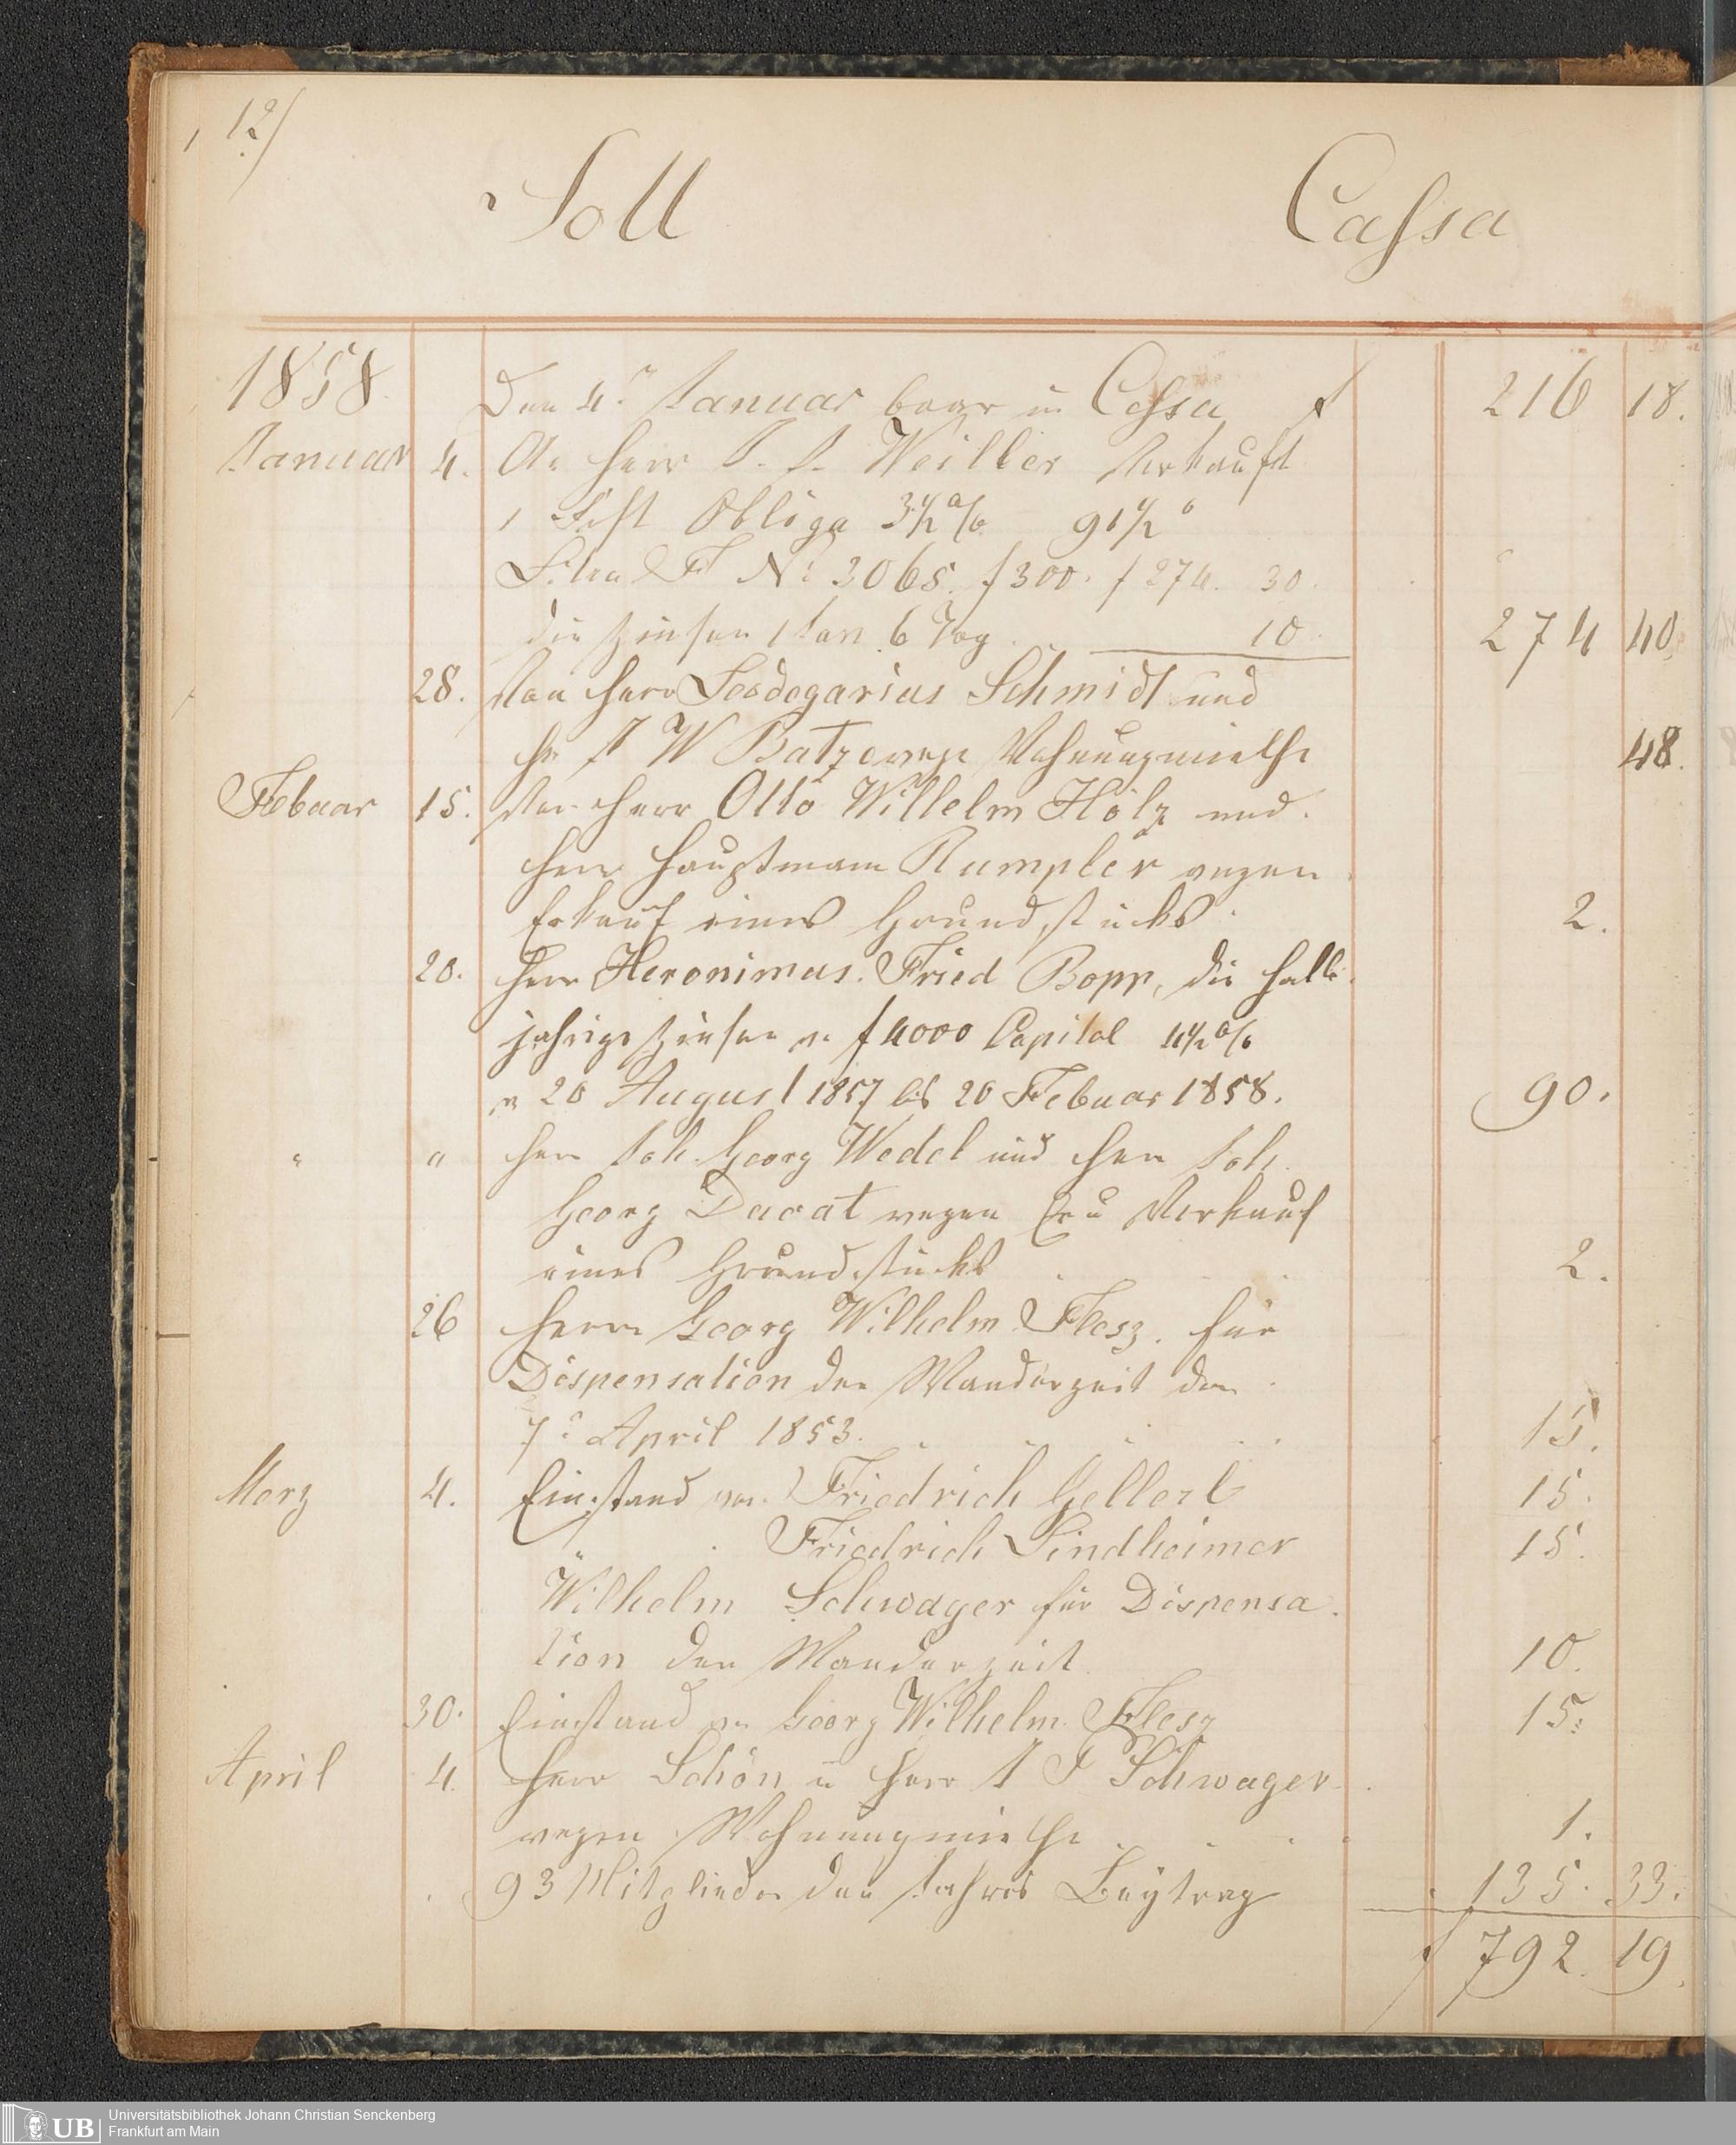 12)
Soll Cassa
1858. Den 4t Januar baar in Cassa f 216 18.
Januar 4. An Herr Weiller Verkauft
1 Obliga 3½ % 91½
Litra F No 3065. f 300. f 274. 30.
die Zinsen 1 Jan 6 Tag. 10. 274 40.
28. Von Herr Leodegarius Schmidt und
Hr J W Wohnungmiethe 48.
Febuar 15. Von Herr Otto Willelm Holz und.
Herr Hauptmann Rumpler wegen
Erkauf eines Grundstücks. 2.
20. Herr Heronimus. Fried Bopp, die halb
jahrige Zinsen v. f 4000 Capital 4½ %
v 20 August 1857 bis 20 Febuar 1858. 90.
" " Herr Joh. Georg Wedel und Herr Joh.
Georg wegen Er u Verkauf
eines Grundstücks 2.
26 Herrn Georg Wilhelm Flesz. für
Dispensation der Wanderzeit den
7t April 1853. 15.
Merz 4. Einstand von Friedrich Gellert 15.
Friedrich Lindheimer 15.
Wilhelm Schwager für Dispensa.
tion der Wanderzeit. 10.
30. Einstand v. Georg Wilhelm Flesz 15.
April 4. Herr Schön u Herr J Schwager
wegen Wohnungmiethe 1.
93 Mitglieder den Jahres Beytrag 135. 33.
f 792. 19.
UB Universitätsbibliothek Johann Christian Senckenberg
Frankfurt am Main